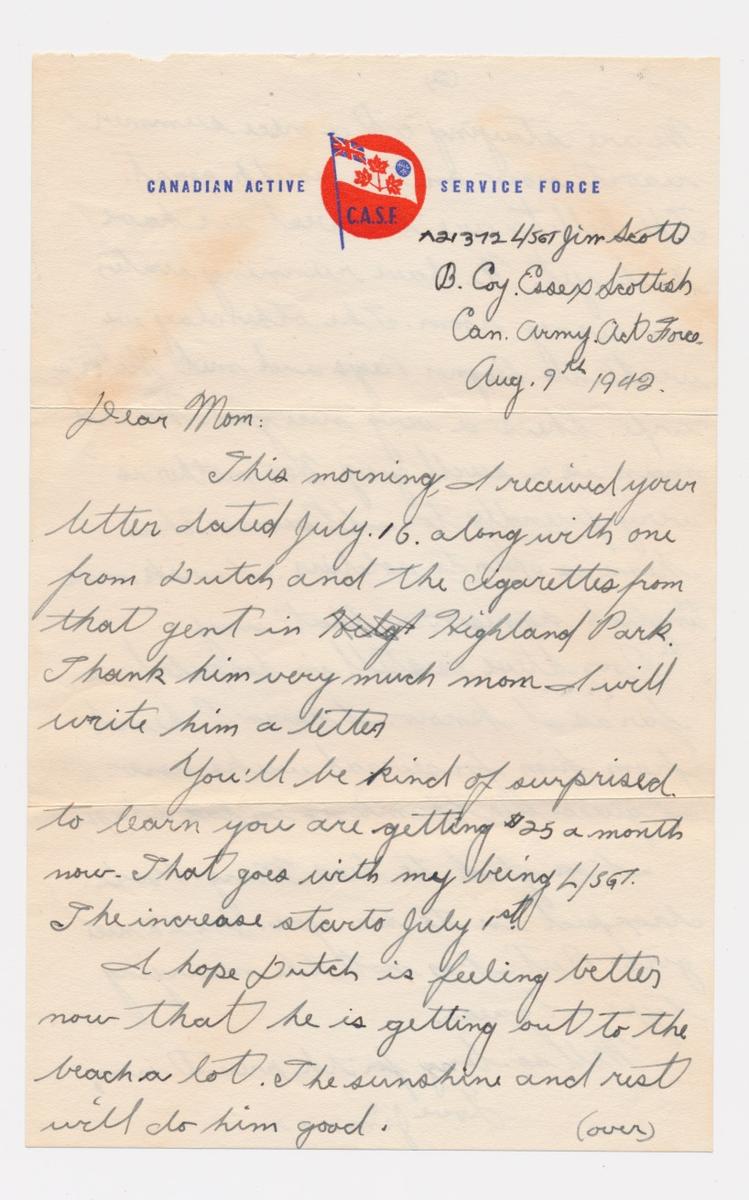 CANADIAN ACTIVE SERVICE FORCE
C.A.S.F.
A21372 L/SGT Jim Scott
B. Coy. Essex Scottish
Can. Army. Act Force.
Aug. 9th 1942.
Dear Mom:
This morning I received your
letter dated July. 16. along with one
from Dutch and the cigarettes from
that gent in Highland Park.
Thank him very much mom I will
write him a letter
You'll be kind of surprised.
to learn you are getting $25 a month
now. That goes with my being L/SGT.
The increase starts July 1st.
I hope Dutch is feeling better
now that he is getting out to the
beach a lot. The sunshine and rest
will do him good.
(over)